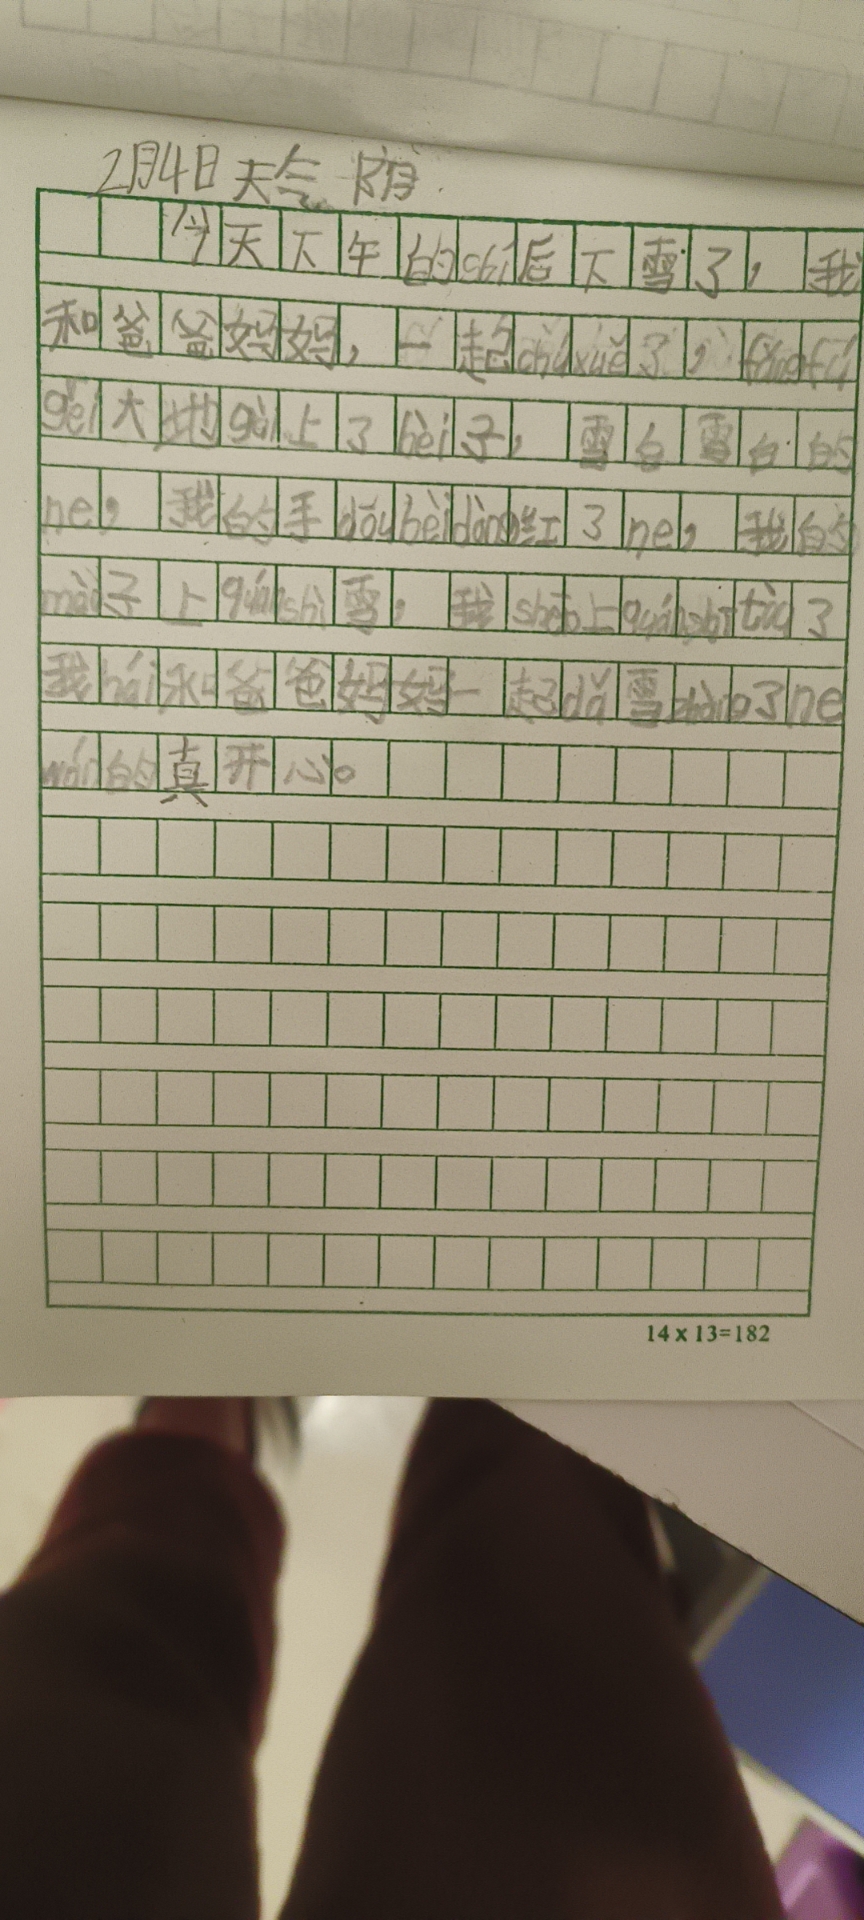 2月4日 天气 阴
今天下午的shí后下雪了，我
和爸爸妈妈，一起chǎnxuě了，fǎngfú
gěi大地gài上了bèi子，雪白雪白的
ne，我的手dōubèidòng红了ne，我的
mào子上quánshì雪，我shēn上quánshì
我hái和爸爸妈妈一起dǎ雪zhàng了ne
wán的真开心。
14 x 13=182